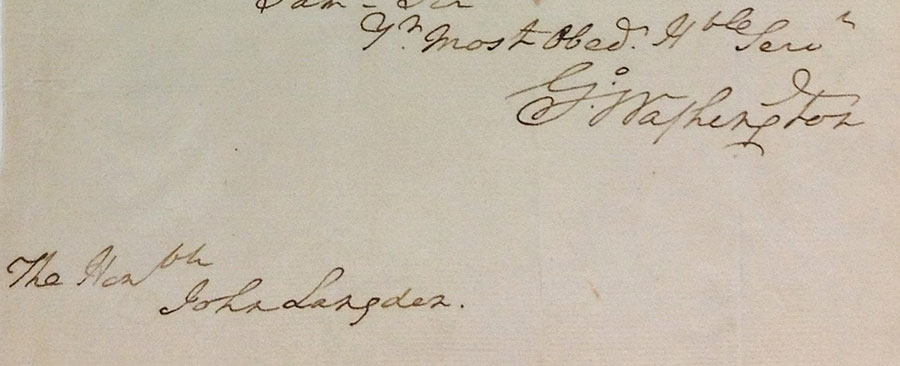 I am - Sir
Yr. Most Obed. Hble Serv
Go: Washington
The Honble
John Langdon.